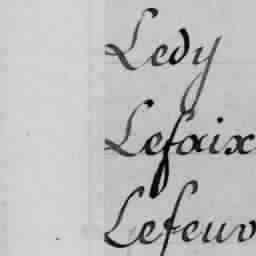 Ledy
Lefaix
Lefeuv